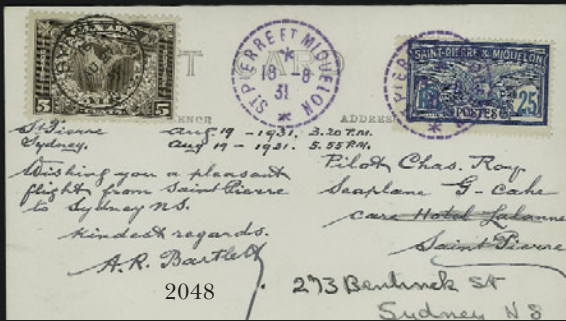 CANADA
5 5
ST PIERRE ET MIQUELON
18-8
31
SAINT-PIERRE & MIQUELON
POSTES
25
ST PIERRE
CARD
ADDRESS
St Pierre Aug 19-1931. 3.20 P.M.
Sydney. Aug 19-1931. 5.55 P.M.
Wishing you a pleasant
flight from Saint Pierre
to Sydney NS.
Kindest regards.
A.R. Bartlett
Pilot Chas. Roy
Seaplane G-
care Hotel
Saint Pierre
273 Bentinck St
Sydney N S
2048